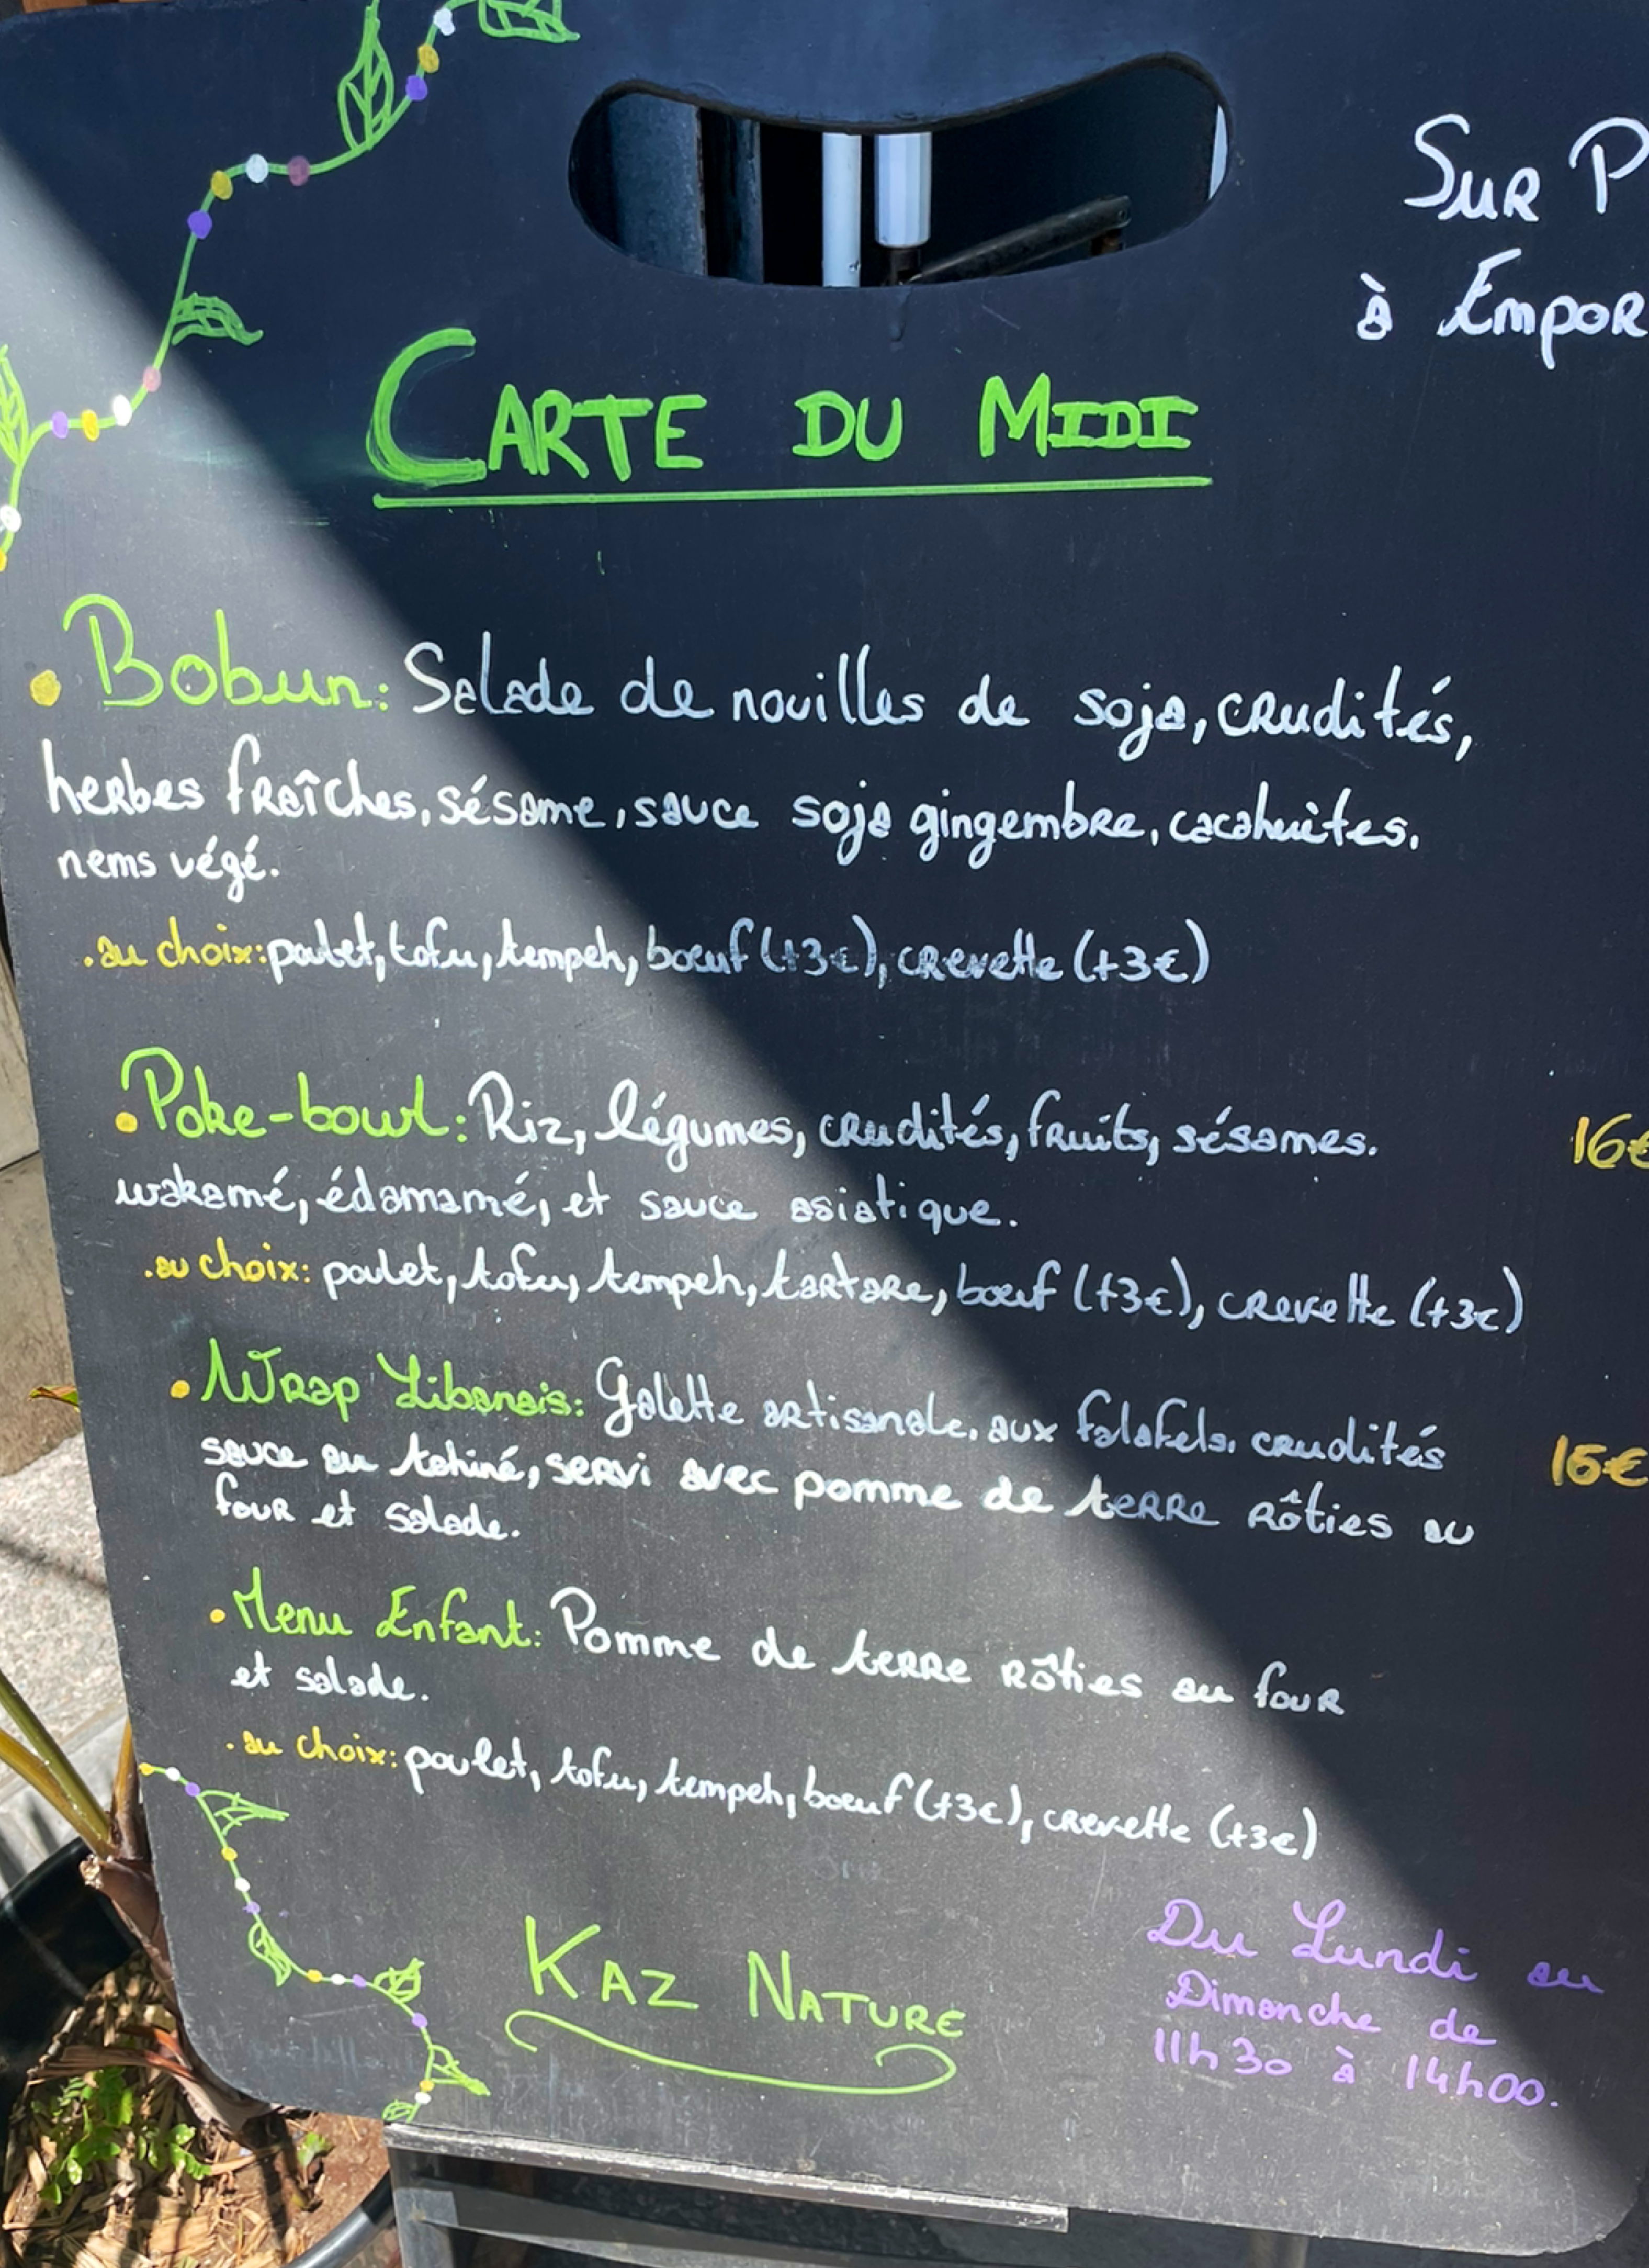 Sur P
à Empor
CARTE DU MIDI
• Bobun: Salade de nouilles de soja, crudités,
herbes fraîches, sésame, sauce soja gingembre, cacahuètes.
nems végé.
. au choix: poulet, tofu, tempeh, bœuf (+3€), crevette (+3€)
• Poke-bowl: Riz, légumes, crudités, fruits, sésames. 16€
wakamé, édamamé, et sauce asiatique.
. au choix: poulet, tofu, tempeh, tartare, bœuf (+3€), crevette (+3€)
• Wrap Libanais: Galette artisanale, aux falafels, crudités 15€
sauce au tahiné, servi avec pomme de terre rôties au
four et salade.
• Menu Enfant: Pomme de terre rôties au four
et salade.
. au choix: poulet, tofu, tempeh, bœuf (+3€), crevette (+3€)
KAZ NATURE
Du Lundi au
Dimanche de
11h30 à 14h00.